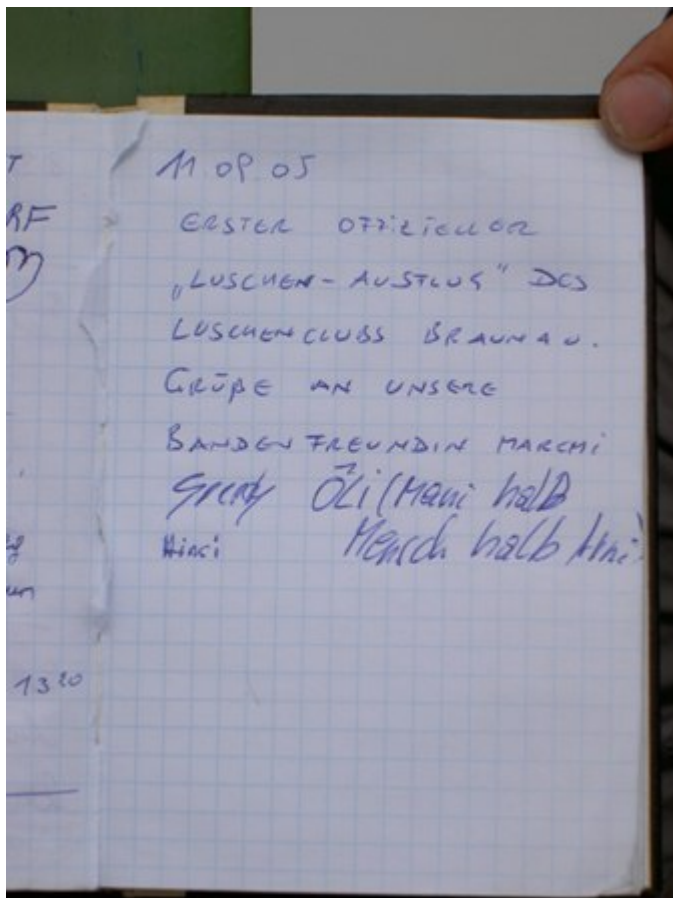 T
RF
11 09 05
ERSTER OFFIZIELLER
„LUSCHEN-AUSFLUG" DES
LUSCHENCLUBS BRAUNAU.
GRÜßE AN UNSERE
BANDENFREUNDIN MARCHI
Öli (Mani halb
Mensch halb
13 20